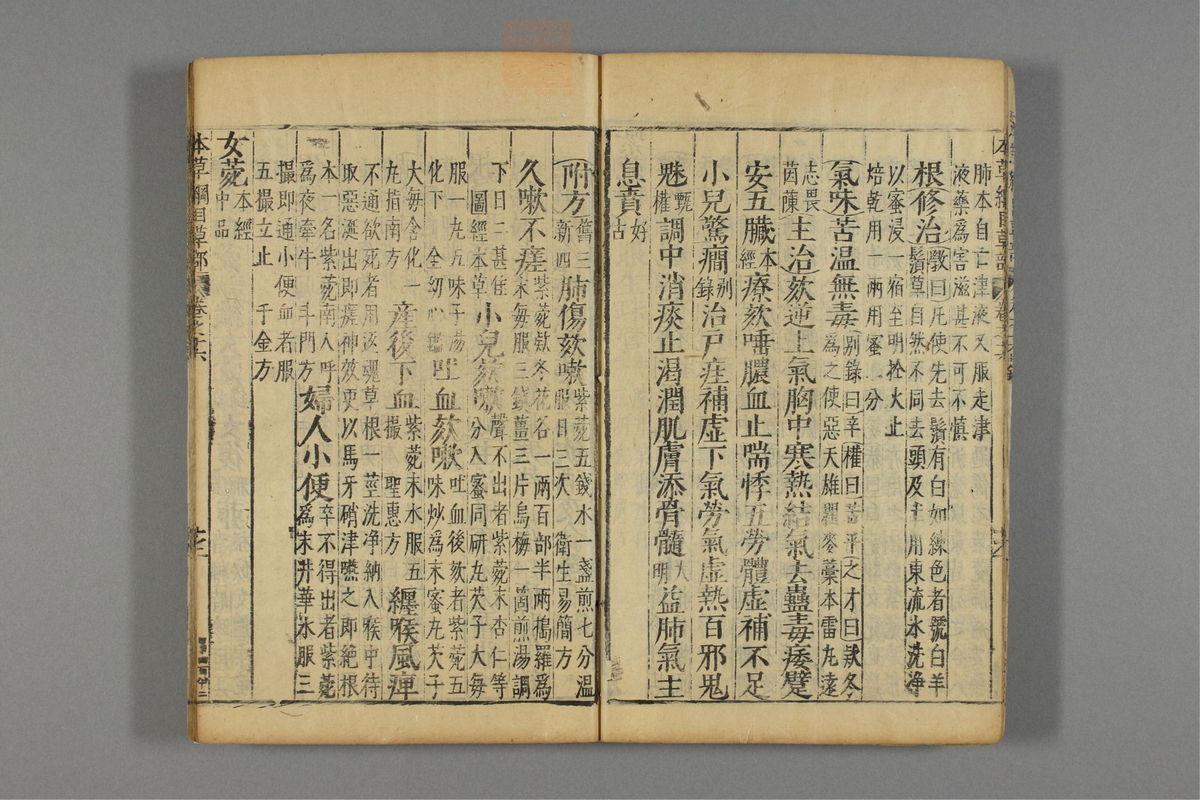 肺本自亡津液又服走津
液藥為害滋甚不可不慎
根修治斅曰凡使先去鬚有白如練色者號白羊
鬚草自然不同去頭及土用東流水洗淨
以蜜浸一宿至明於火上
焙乾用一兩用蜜二分
氣味苦溫無毒別錄曰辛權曰苦平之才曰款冬
為之使惡天雄瞿麥藁本雷丸遠
志畏
茵蔯主治欬逆上氣胸中寒熱結氣去蠱毒痿躄
安五臟本經療欬唾膿血止喘悸五勞體虛補不足
小兒驚癇別錄治尸疰補虛下氣勞氣虛熱百邪鬼
魅甄權調中消痰止渴潤肌膚添骨髓大明益肺氣主
息賁好古
附方舊三新四肺傷欬嗽紫菀五錢水一盞煎七分溫
服日三次 衛生易簡方
久嗽不瘥紫菀欵冬花各一兩百部半兩搗羅為
末每服三錢薑三片烏梅一箇煎湯調
下日二甚佳
圖經本草小兒欬嗽聲不出者紫菀末杏仁等
分入蜜同研丸芡子大每
服一丸五味子湯
化下 全幼心鑑吐血欬嗽吐血後欬者紫菀五
味炒為末蜜丸芡子
大每含化一
丸指南方產後下血紫菀末水服五
撮 聖惠方纏喉風痺
不通欲死者用返魂草根一莖洗淨納入喉中待
取惡涎出即瘥神效更以馬牙硝津嚥之即絕根
本一名紫菀南人呼
為夜牽牛 斗門方婦人小便卒不得出者紫菀
為末井華水服三
撮即通小便血者服
五撮立止 千金方
女菀本經中品
本草綱目草部 卷之十六